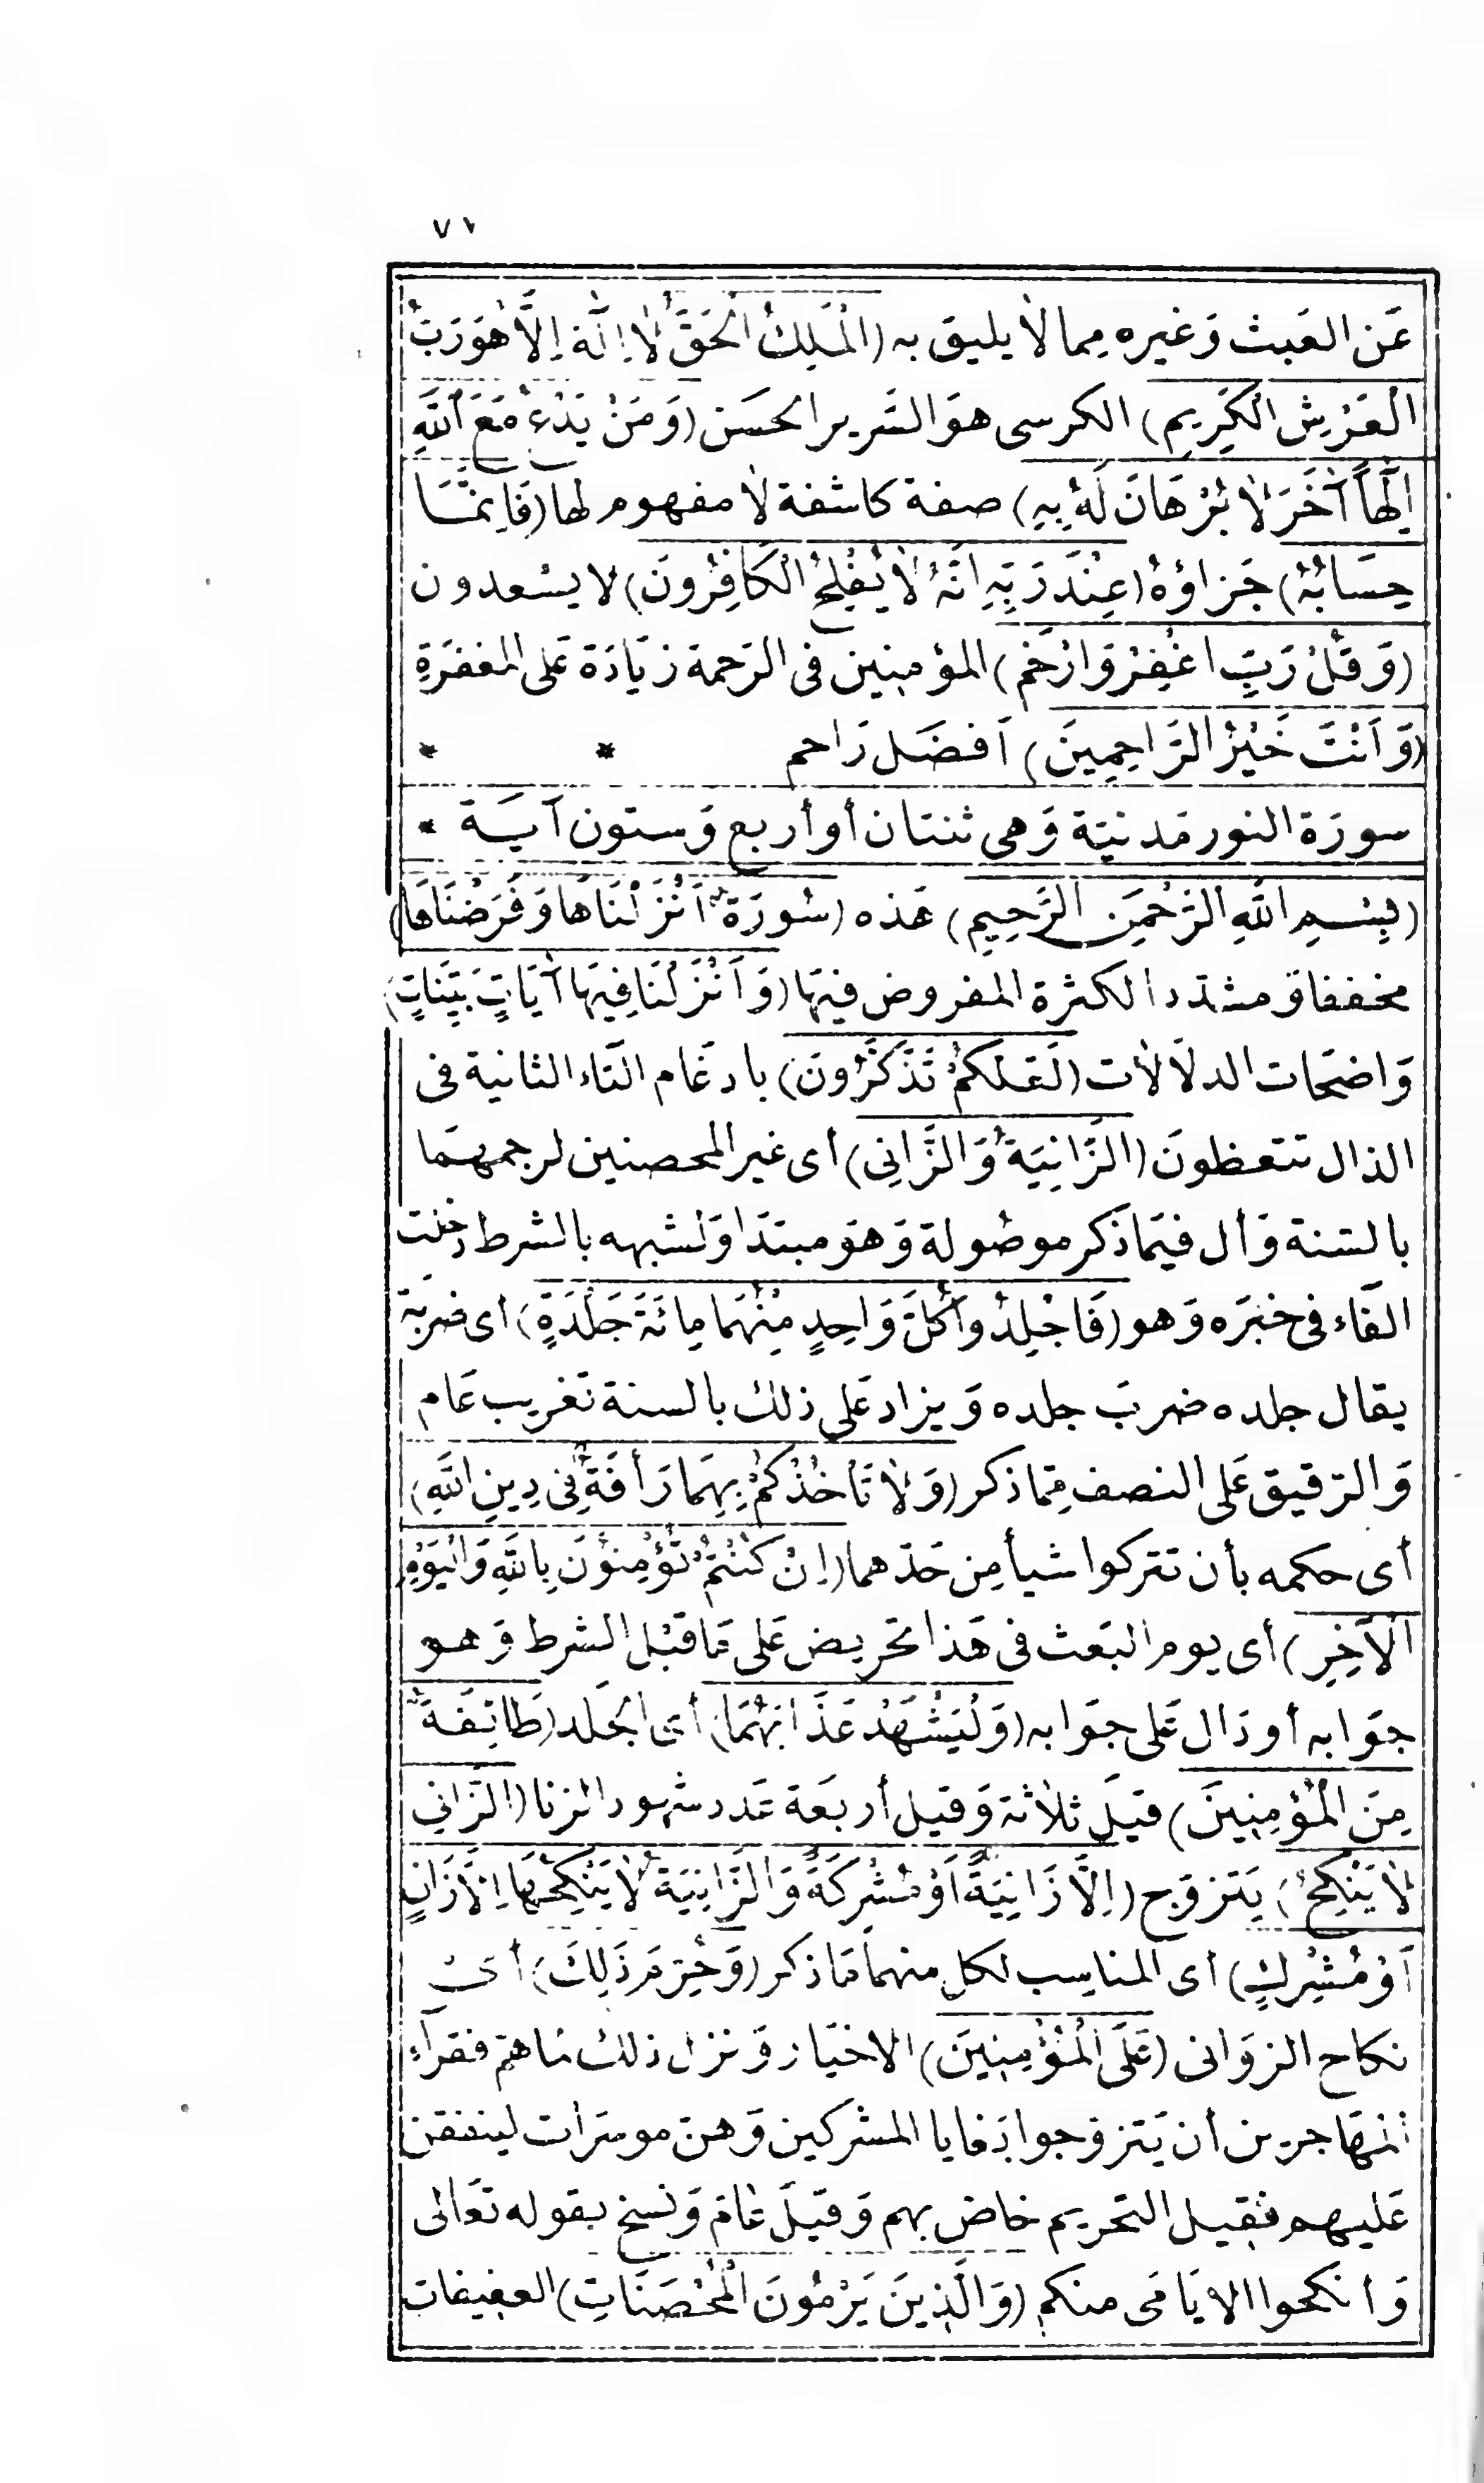 ٧١
عَن العَبث وَغيره مِما لا يليق به (الْمَلِكُ الْحَقُّ لَا إِلَهَ إِلَّا هُوَ رَبُّ
الْعَرْشِ الْكَرِيمِ) الكرسى هوَ السَّرير الحسَن (وَمَنْ يَدْعُ مَعَ اللَّهِ
إِلَهاً آخَرَ لَا بُرْهَانَ لَهُ بِهِ) صفة كاشفة لا مفهوم لها (فَإِنَّمَا
حِسَابُهُ) جَزاؤهُ (عِنْدَ رَبِّهِ إِنَّهُ لَا يُفْلِحُ الْكَافِرُونَ) لا يسْعدون
(وَقُلْ رَبِّ اغْفِرْ وَارْحَمْ) المؤمنين فى الرَحمة زيَادَة عَلى المغفرَةِ
(وَأَنْتَ خَيْرُ الرَّاحِمِينَ) أَفضَل رَاحم * *
سورَة النور مَدنيّة وَهى ثنتان أو أربع وَستون آيَة *
(بِسْمِ اللَّهِ الرَّحْمَنِ الرَّحِيمِ) هَذه (سُورَةٌ أَنْزَلْنَاهَا وَفَرَضْنَاهَا)
مخففا وَمشدّدا لكثرة المفروض فيهَا (وَأَنْزَلْنَا فِيهَا آيَاتٍ بَيِّنَاتٍ)
وَاضحَات الدلَالات (لَعَلَّكُمْ تَذَّكَّرُونَ) بادغَام التّاء الثانية فى
الذال تتعظونَ (الزَّانِيَةُ وَالزَّانِى) أى غير المحصنين لرجمهمَا
بالسّنة وَأل فيمَا ذكر موصُولة وَهوَ مبتدَا وَلشبهه بالشرط دخلت
الفَاء فى خبَره وَهو (فَاجْلِدُوا كُلَّ وَاحِدٍ مِنْهُمَا مِائَةَ جَلْدَةٍ) أى ضربَة
يقال جلده ضربَ جلده وَيزاد عَلى ذلك بالسنة تغريب عَام
وَالرّقيق عَلى النصف ممّا ذكر (وَلَا تَأْخُذْكُمْ بِهِمَا رَأْفَةٌ فِى دِينِ اللَّهِ)
أى حكمه بأن تتركوا شيأ مِن حَدّهما (إِنْ كُنْتُمْ تُؤْمِنُونَ بِاللَّهِ وَالْيَوْمِ
الْآخِرِ) أى يوم البَعث فى هَذا تحريض عَلى مَا قبْل الشرط وَهو
جوَابه أو دَال عَلى جوَابه (وَلْيَشْهَدْ عَذَابَهُمَا) أى الجَلد (طَائِفَةٌ
مِنَ الْمُؤْمِنِينَ) قيلَ ثلاثة وَقيل أربَعة عَدد شهود الزنا (الزَّانِي
لَا يَنْكِحُ) يَتزوّج (إِلَّا زَانِيَةً أَوْ مُشْرِكَةً وَالزَّانِيَةُ لَا يَنْكِحُهَا إِلَّا زَانٍ
أَوْ مُشْرِكٍ) أى المناسِب لكل منهمَا مَا ذكر (وَحُرِّمَ ذَلِكَ) أى
نكاح الزوَانى (عَلَى الْمُؤْمِنِينَ) الاخيَار وَنزل ذلك لما همّ فقرآء
المهَاجرين أن يَتزوّجوا بَغايا المشركين وَهنّ موسرَات لينفقن
عَليهم فقيل التحريم خاصّ بهم وَقيلَ عَامّ وَنسخ بقوله تعَالى
وَأنكحوا الايَامَى منكم (وَالَّذِينَ يَرْمُونَ الْمُحْصَنَاتِ) العفيفات